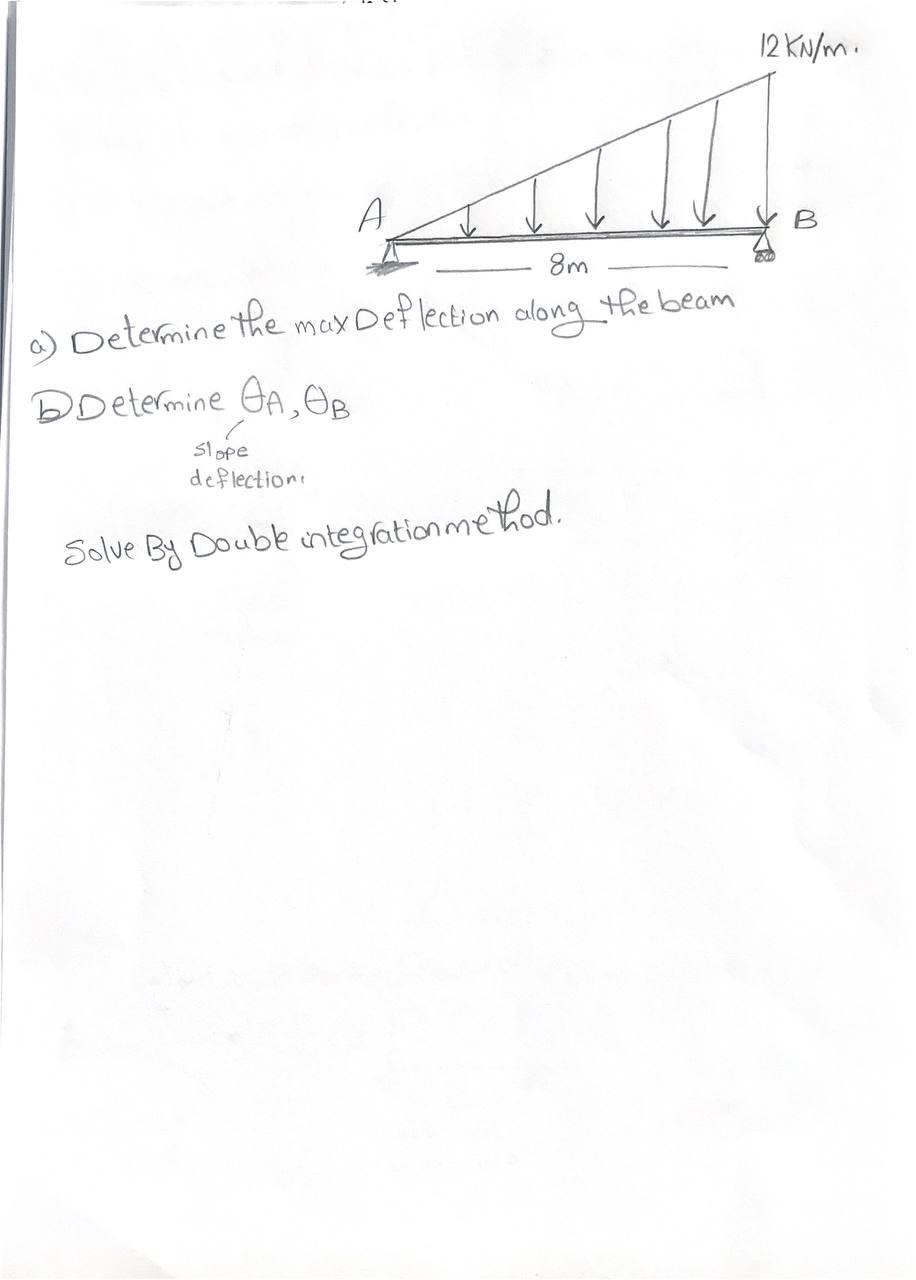 12 KN/m.
A
B
8m
a) Determine the max Deflection along the beam
b) Determine θA, θB
slope
deflection.
Solve By Double integration method.